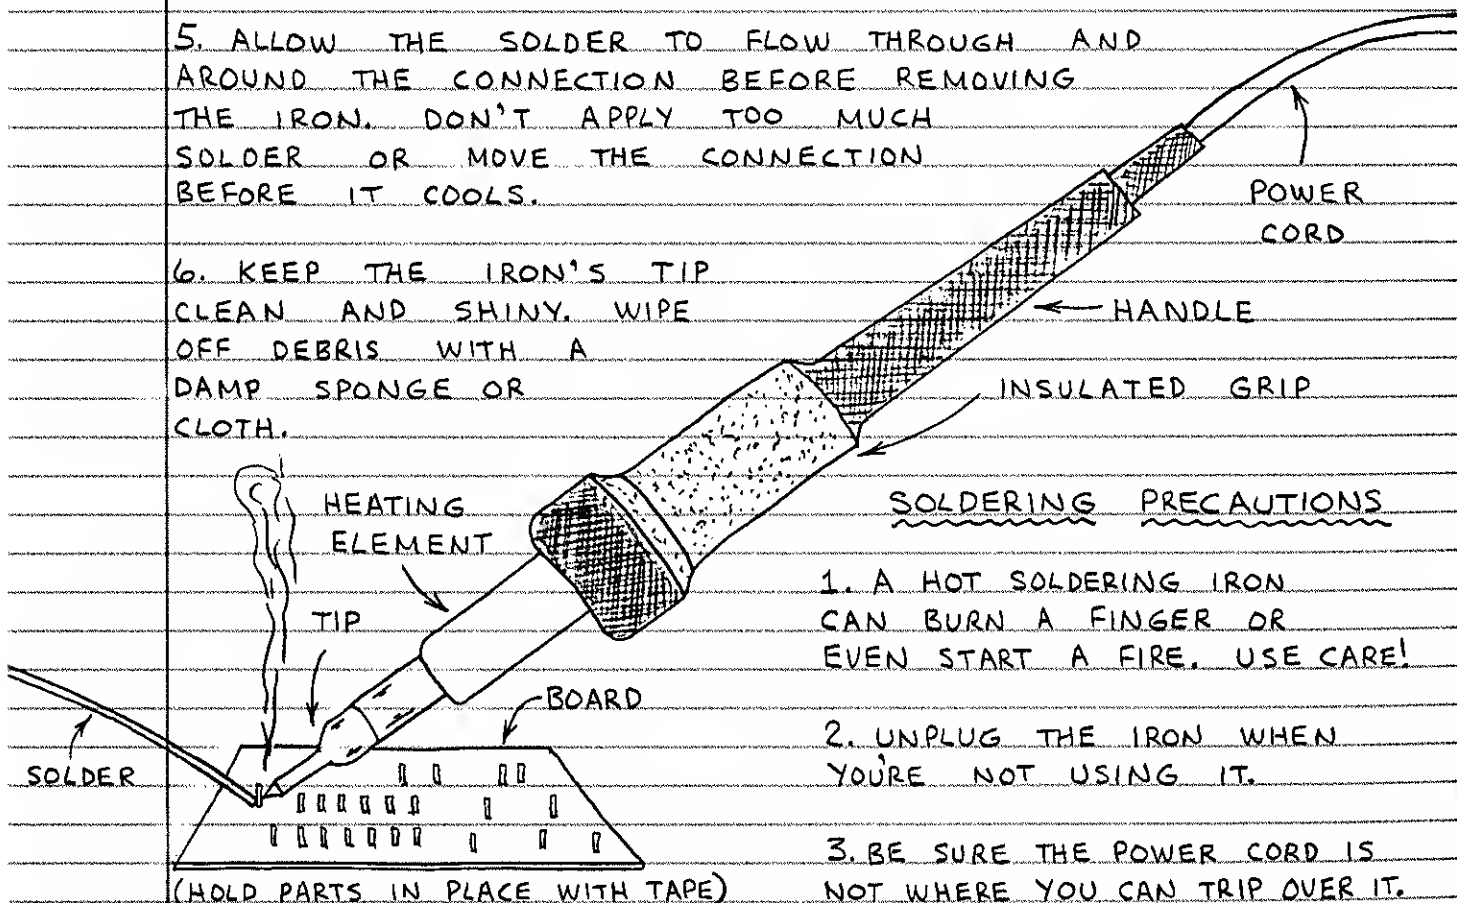 5. ALLOW THE SOLDER TO FLOW THROUGH AND
AROUND THE CONNECTION BEFORE REMOVING
THE IRON. DON'T APPLY TOO MUCH
SOLDER OR MOVE THE CONNECTION
BEFORE IT COOLS.
6. KEEP THE IRON'S TIP
CLEAN AND SHINY. WIPE
OFF DEBRIS WITH A
DAMP SPONGE OR
CLOTH.
POWER
CORD
HANDLE
INSULATED GRIP
HEATING
ELEMENT
TIP
BOARD
SOLDER
(HOLD PARTS IN PLACE WITH TAPE)
SOLDERING PRECAUTIONS
1. A HOT SOLDERING IRON
CAN BURN A FINGER OR
EVEN START A FIRE. USE CARE!
2. UNPLUG THE IRON WHEN
YOU'RE NOT USING IT.
3. BE SURE THE POWER CORD IS
NOT WHERE YOU CAN TRIP OVER IT.